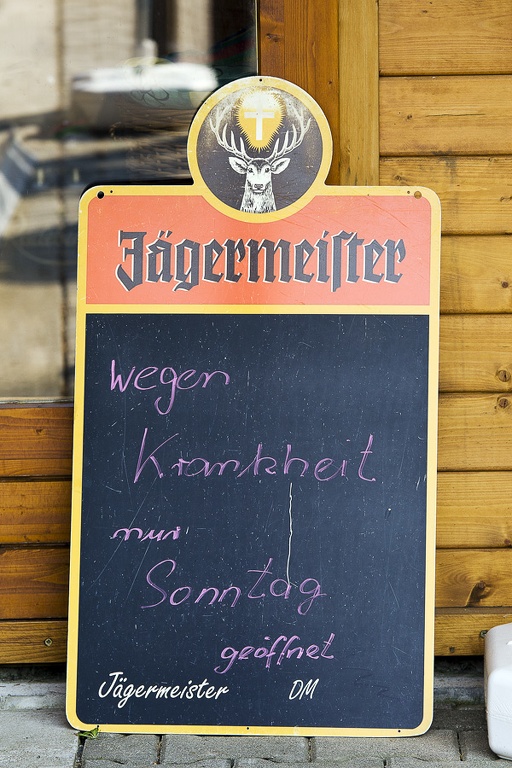 Jägermeiſter
Wegen
Krankheit
nur
Sonntag
geöffnet
Jägermeister DM